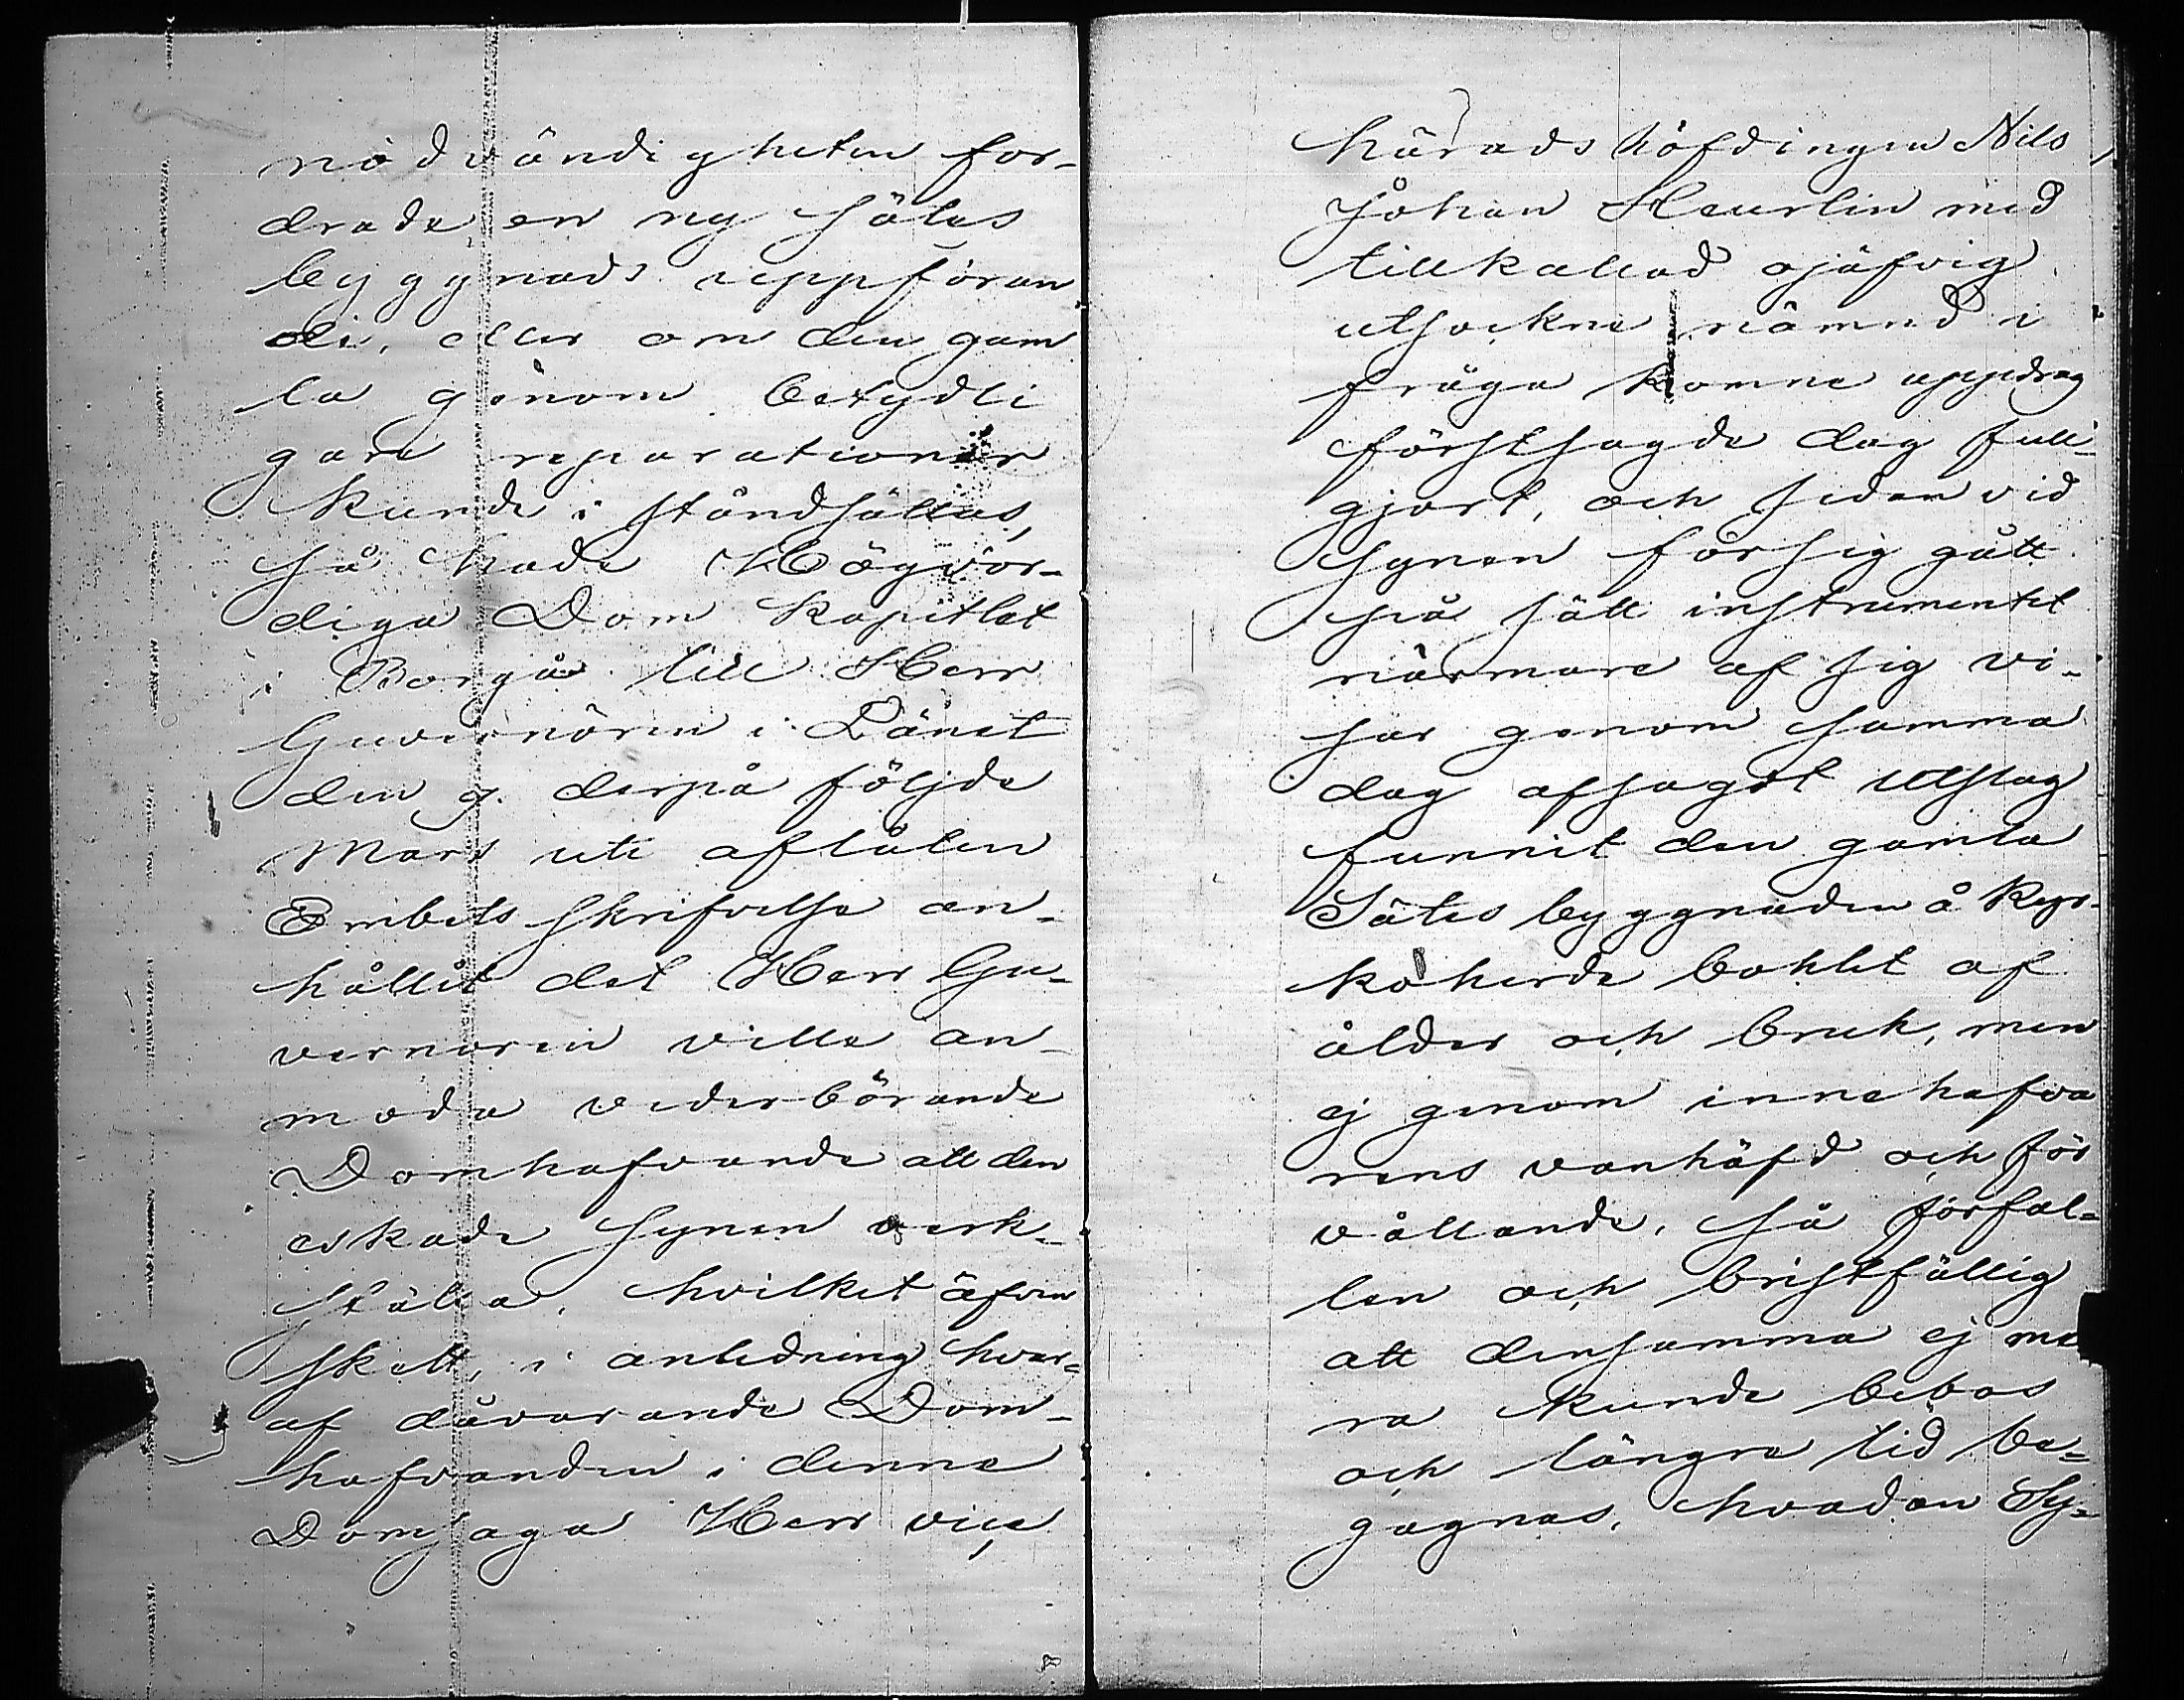 nödvändigheten for-
drade en ny sätes
byggnads uppföran
de, eller om den gam
la genom betydli
gare reparationer
kunde i ståndsättas,
så hade Högvör-
diga Dom Kapitlet
i Borgå till Herr
Guvernören i Länet
den 9. derpå följde
Mars uti aflåten
Embets skrifvelse an-
hållit det Herr Gu-
vernören ville an-
moda vederbörande
Domhafvande att den
eskade synen verk-
ställa, hvilket äfven
skett, i anledning hvar-
af dåvarande Dom-
hafvanden i denna
Domsaga Herr vice
härads höfdingen Nils
Johan Heurlin med
tillkallad ojäfvig
utsockne nämnd i
fråga komne uppdrag
förstsagde dag full-
gjort, och sedan vid
synen försig gått
på sätt instrumentet
närmare af sig vi-
sar genom samma
dag afsagdt utslag
funnit den gamla
Sätes byggnaden å kyr-
koherde bohlet af
ålder och bruk, men
ej genom innehafva
rens vanhäfd och för
vållande, så förfal-
len och bristfällig
att densamma ej me
ra kunde bebos
och längre tid be-
gagnas, hvadan Sy-